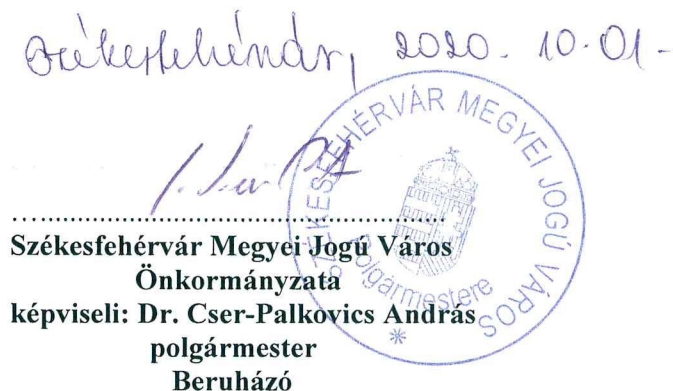 Székesfehérvár, 2020. 10. 01.
SZÉKESFEHÉRVÁR MEGYEI JOGÚ VÁROS
polgármestere
*
Székesfehérvár Megyei Jogú Város
Önkormányzata
képviseli: Dr. Cser-Palkovics András
polgármester
Beruházó